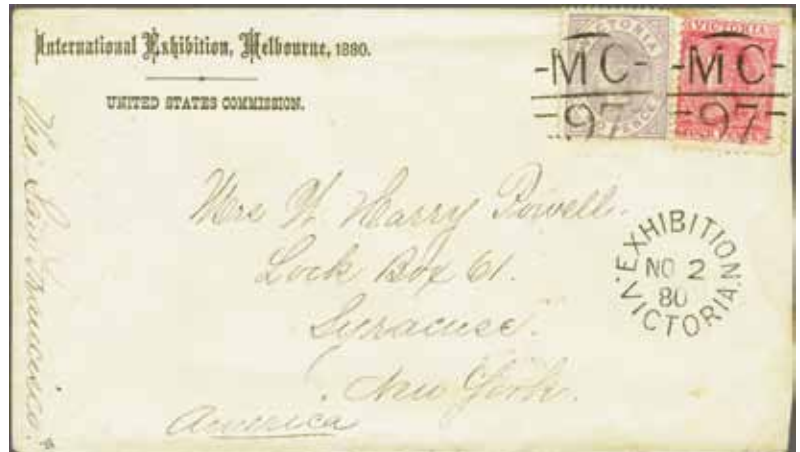 International Exhibition, Melbourne, 1880.
UNITED STATES COMMISSION.
VICTORIA
PENCE
VICTORIA
-MC-
97
-MC-
97
Via. San Francisco.
Mrs W. Harry Powell.
Lock Box 61.
Syracuse.
New York.
America
EXHIBITION.
NO 2
80
VICTORIA